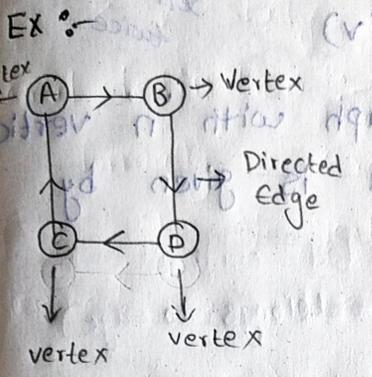 Ex :-
tex
A
B
Vertex
Directed
Edge
C
D
vertex
vertex